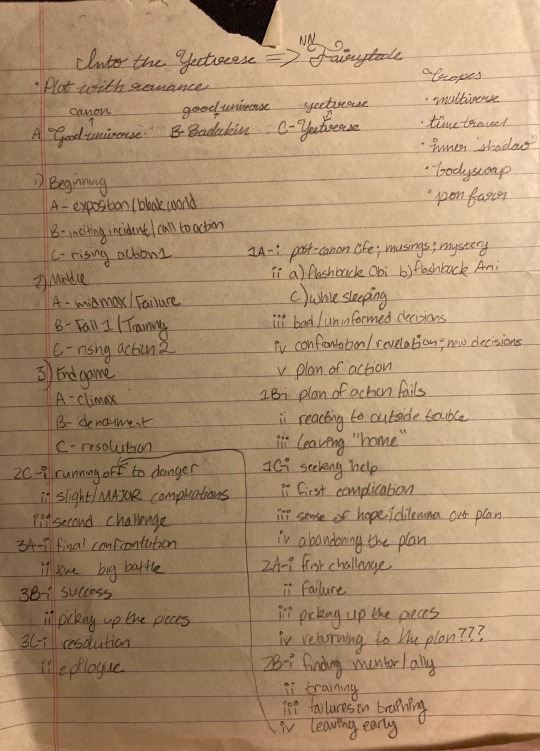 Into the Yeetverse => Fairytale
NN
Tropes
• multiverse
• time travel
• inner "shadow"
• bodyswap
• pon farr
• Plot with romance
canon
good universe
yeetverse
A Good universe
B-Badakin
C-Yeetverse
1) Beginning
A- exposition/bleak world
B- inciting incident/call to action
C- rising action 1
2) Middle
A- midmax/Failure
B- Fall 1/Training
C- rising action 2
3) Endgame
A- climax
B- denoument
C- resolution
1A-i post-canon life; musings; mystery
ii a) flashback Obi b) flashback Ani
c) while sleeping
iii bad/uninformed decisions
iv confrontation/revelation; new decisions
v plan of action
1B-i plan of action fails
ii reacting to outside touble
iii leaving "home"
1C-i seeking help
ii first complication
iii sense of hope; dilemma over plan
iv abandoning the plan
2A-i first challenge
ii failure
iii picking up the pieces
iv returning to the plan???
2B-i finding mentor/ally
ii training
iii failures in training
iv leaving early
2C-i running off to danger
ii slight/MAJOR complications
iii second challenge
3A-i final confrontation
ii the big battle
3B-i success
ii picking up the pieces
3C-i resolution
ii epilogue